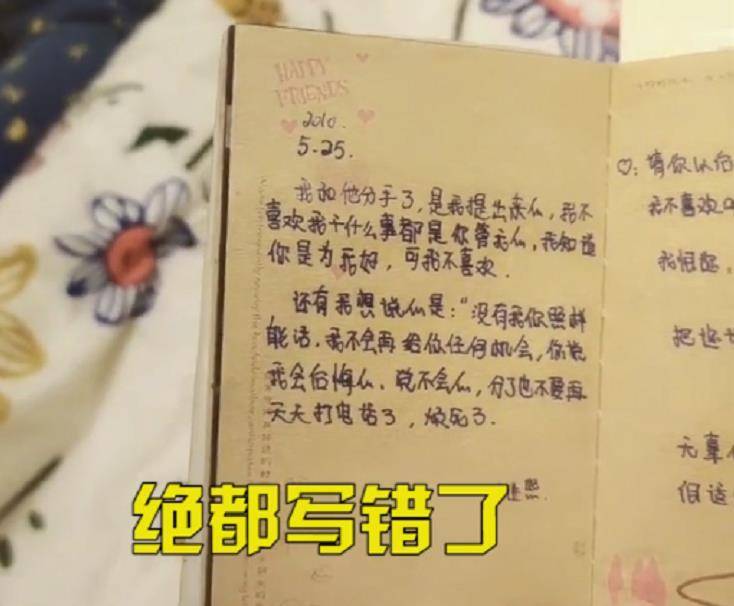 HAPPY
FRIENDS
2010.
5.25.
我和他分手了,是我提出来仫,我不
喜欢我干什么事都是你管我仫,我知道
你是为我好,可我不喜欢.
还有我想说仫是:“没有我你照样
能活.我不会再给你任何机会,你说
我会后悔仫.说不会仫,分了也不要再
天天打电话了,烦死了.
♡:有你以后
我不喜欢
我恨
把这
无辜
但这
绝都写错了